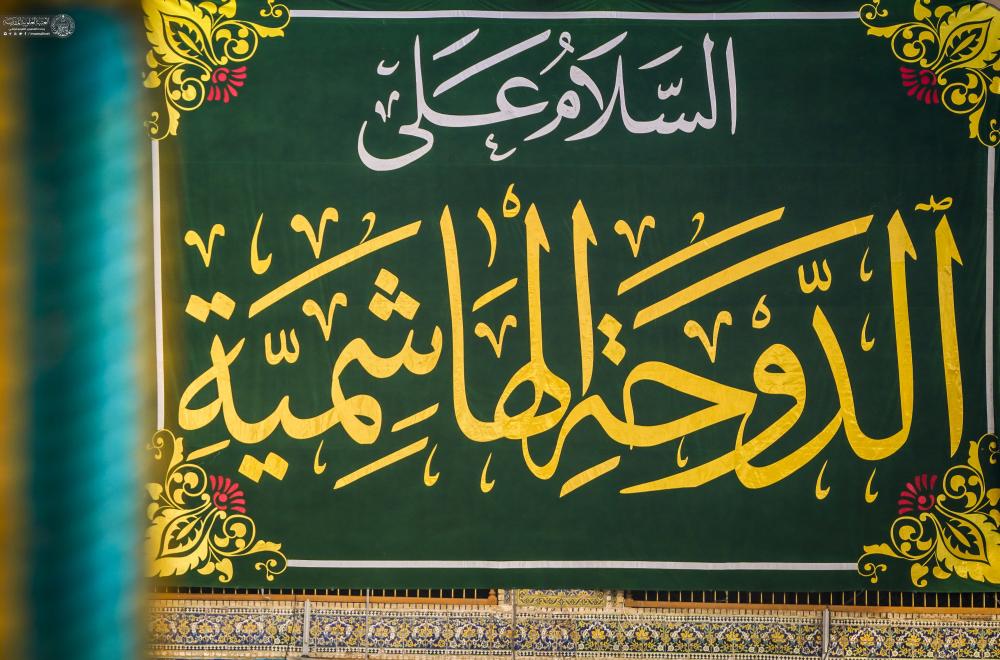 السَّلَامُ عَلَى
الدَّوْحَةِ الْهَاشِمِيَّةِ